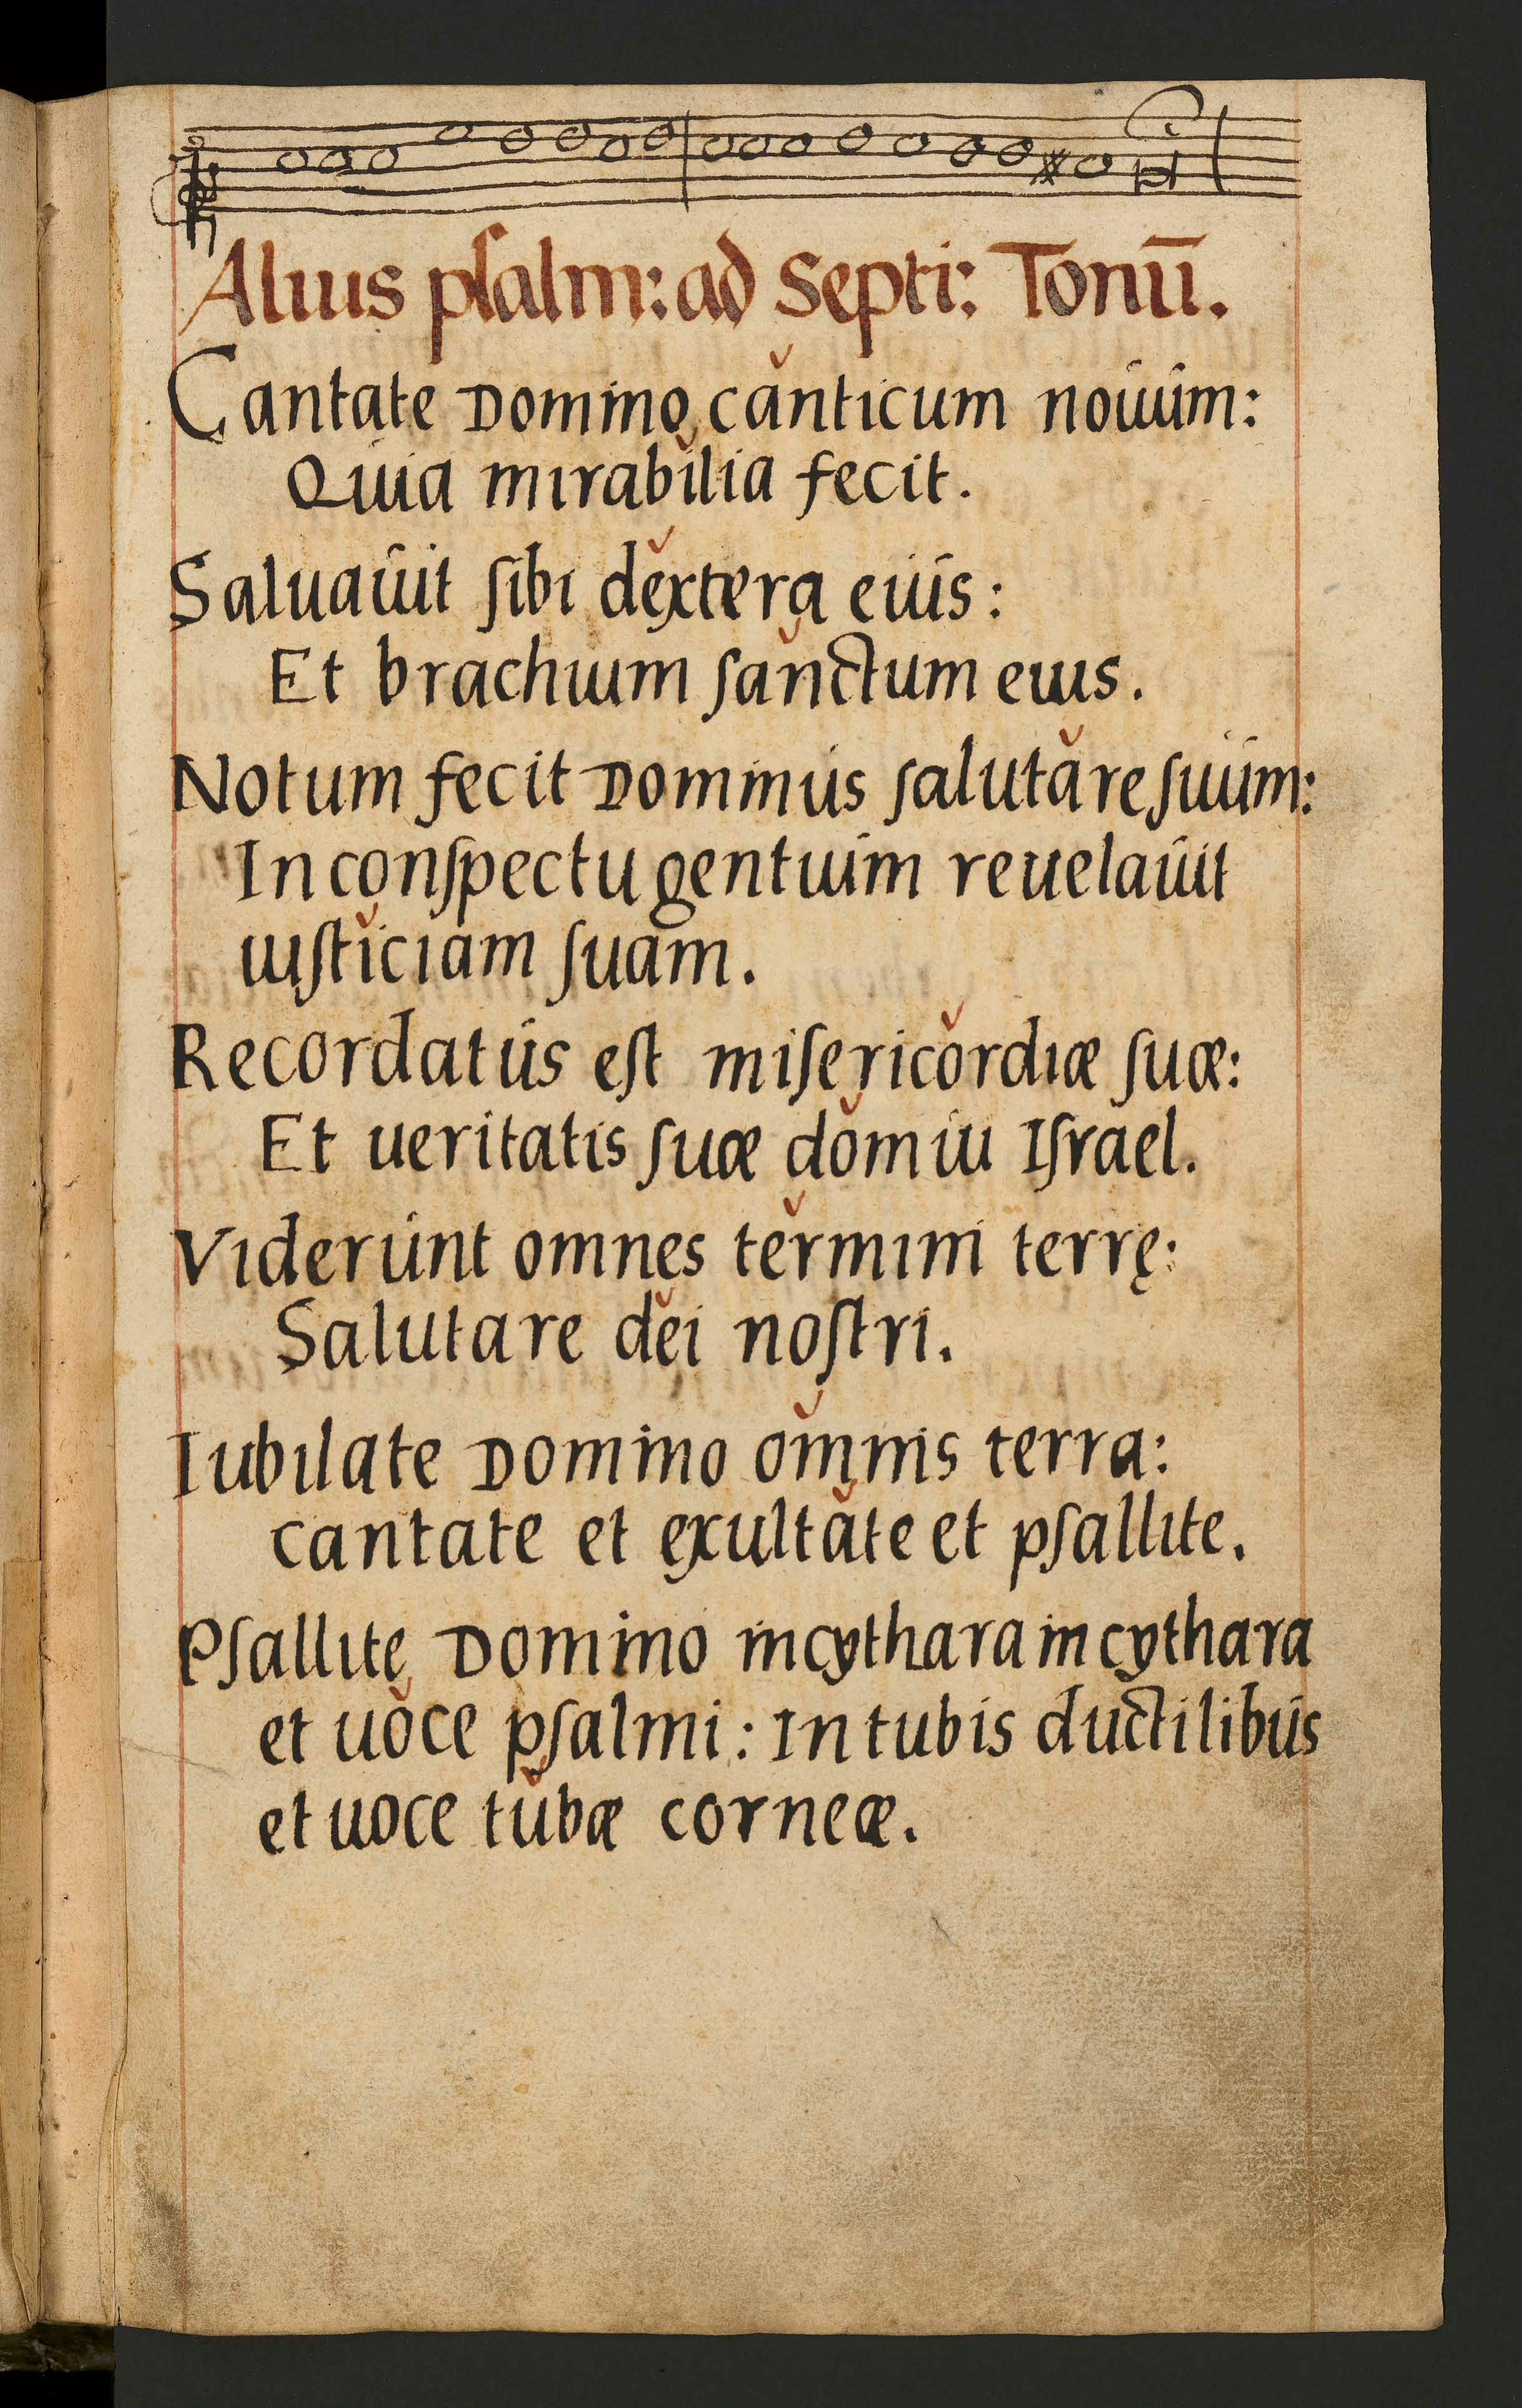 Alius psalm: ad Septi: Tonū.
Cantate Domino canticum nouum:
Quia mirabilia fecit.
Saluauit sibi dextera eius:
Et brachium sanctum eius.
Notum fecit Dominus salutare suum:
In conspectu gentium reuelauit
iusticiam suam.
Recordatus est misericordiæ suæ:
Et ueritatis suæ domui Israel.
Viderunt omnes termini terrę:
Salutare dei nostri.
Iubilate Domino omnis terra:
cantate et exultate et psallite.
Psallite Domino in cythara in cythara
et uoce psalmi: In tubis ductilibus
et uoce tubæ corneæ.